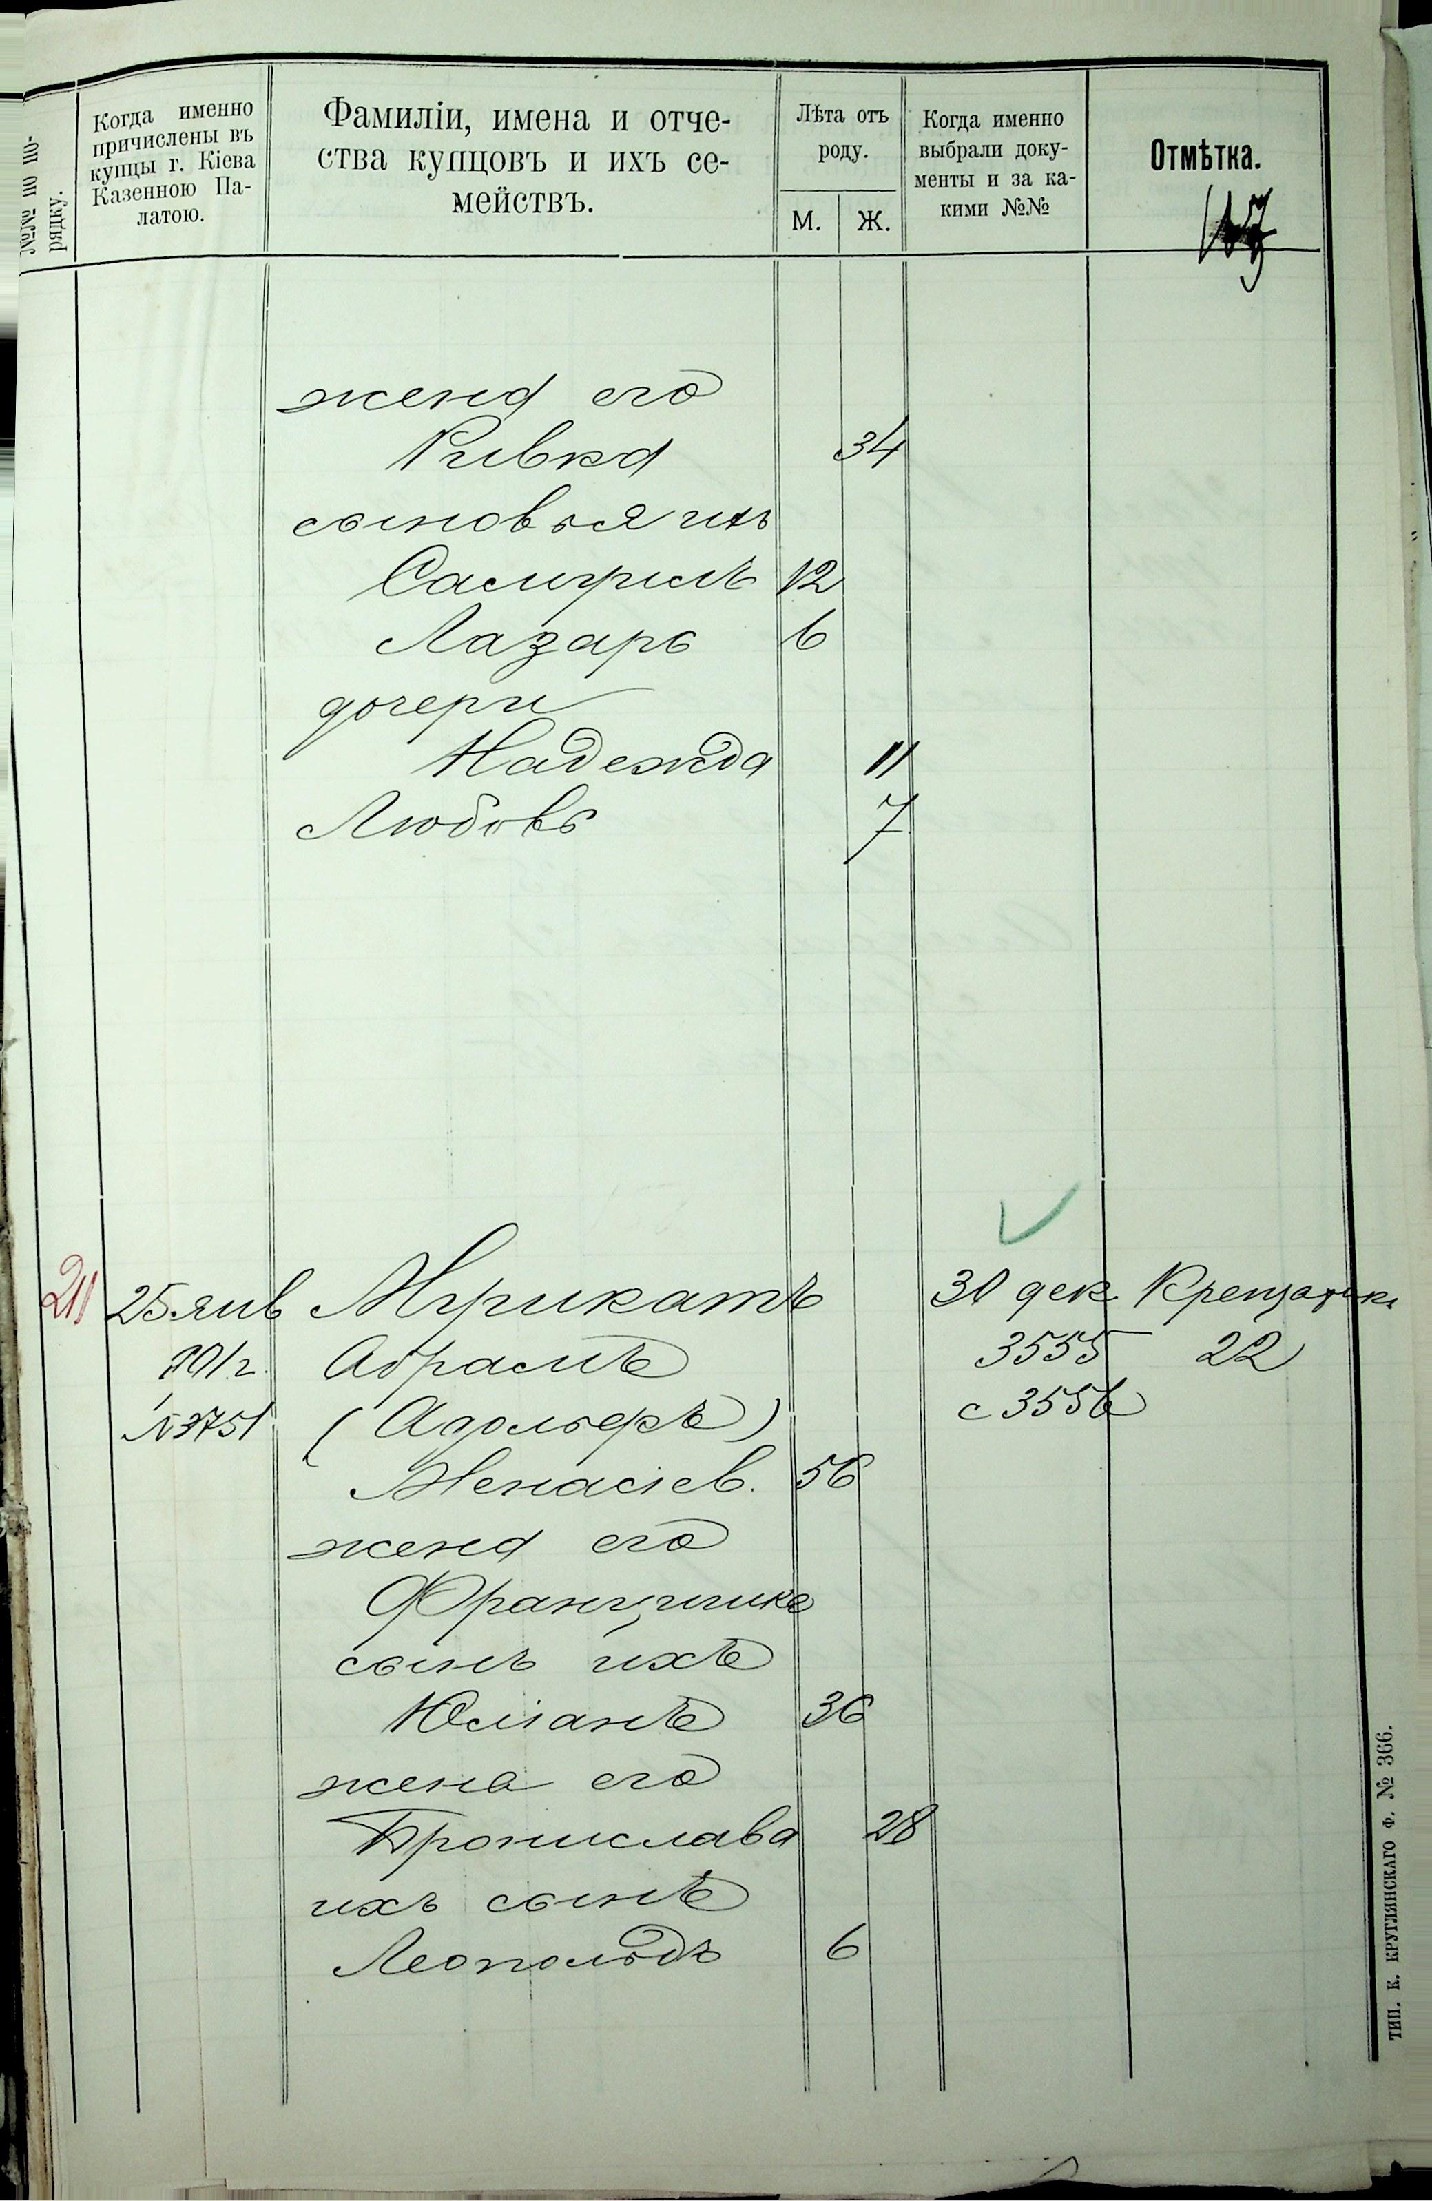 №№ по по-
рядку.
Когда именно
причислены въ
купцы г. Кіева
Казенною Па-
латою.
Фамиліи, имена и отче-
ства купцовъ и ихъ се-
мействъ.
Лѣта отъ
роду.
М.
Ж.
Когда именно
выбрали доку-
менты и за ка-
кими №№
Отмѣтка.
жена его
Ривка 34
сыновья ихъ
Самуилъ 12
Лазарь 6
дочери
Надежда 11
Любовь 7
211 25 янв Мурикатъ 30 дек
Абрамъ 3555 22
№ 3751 (Адольфъ) с 3556
Менасіев. 56
жена его
Францишка
сынъ ихъ
Юліанъ 36
жена его
Бронислава 28
ихъ сынъ
Леопольдъ 6
ТИП. К. КРУГЛЯНСКАГО Ф. № 366.